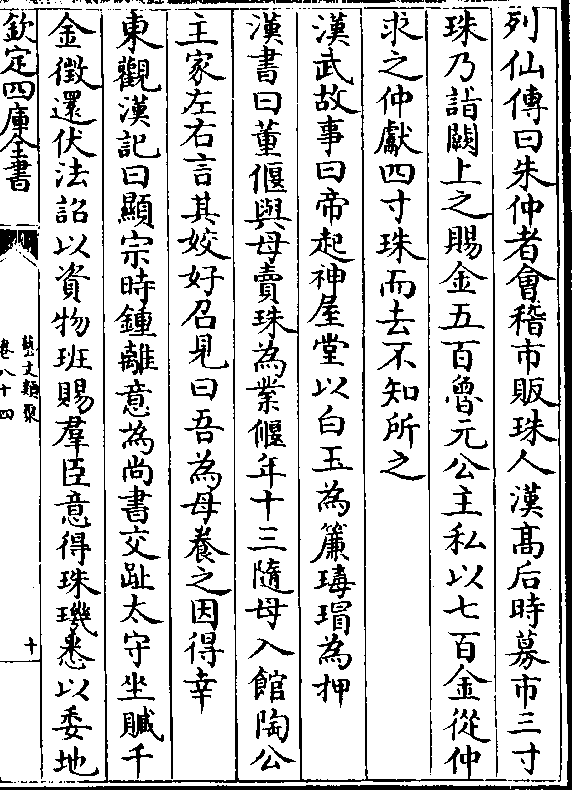 列仙傳曰朱仲者會稽市販珠人漢髙后時募市三寸
珠乃詣闕上之賜金五百魯元公主私以七百金從仲
求之仲獻四寸珠而去不知所之
漢武故事曰帝起神屋堂以白玉為簾瑇瑁為押
漢書曰董偃與母賣珠為業偃年十三隨母入館陶公
主家左右言其姣好召見曰吾為母養之因得幸
東觀漢記曰顯宗時鍾離意為尚書交趾太守坐贓千
金徴還伏法詔以資物班賜羣臣意得珠璣悉以委地
欽定四庫全書
藝文類聚
卷八十四
十